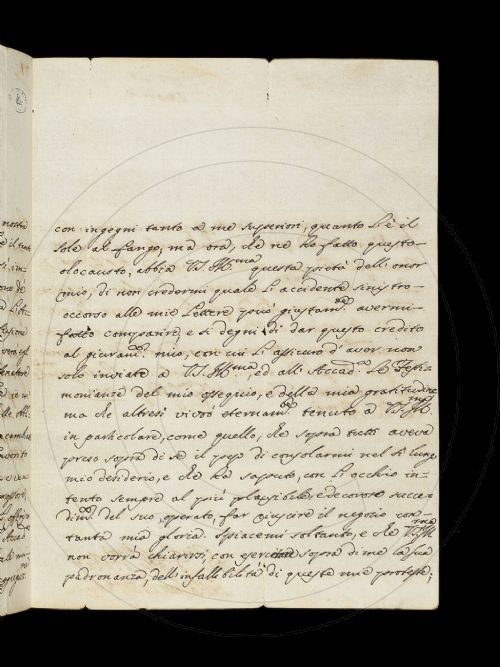 con ingegni tanto a me superiori, quanto li è il
Sole al fango, ma ora, che ne ho fatto questo
olocausto, abbia V.S. Ill.ma questa pietà dell' onor
mio, di non credermi quale l'accidente sinistro
occorso alle mie Lettere può giustam.te avermi
fatto comparire, e si degni di dar questo credito
al giuram.to mio, con cui L' assicuro d' aver non
solo inviate a V.S. Ill.ma, ed all' Accad.a le Testi-
monianze del mio ossequio, e della mia gratitudine
ma che altresì vivrò eternam.te tenuto a V.S. Ill.ma
in particolare, come quello, che sopra tutti aveva
preso sopra di sé il peso di consolarmi nel sì lungo
mio desiderio, e che ha saputo, con l' occhio in-
tento sempre al più plausibile, e decoroso
del suo operato, far riuscire il negozio con
tanta mia gloria. Spiacemi soltanto, e che V.S. Ill.ma
non vorrà chiarirsi, con sopra di me la sua
padronanza, dell' infallibilità di queste mie proteste;